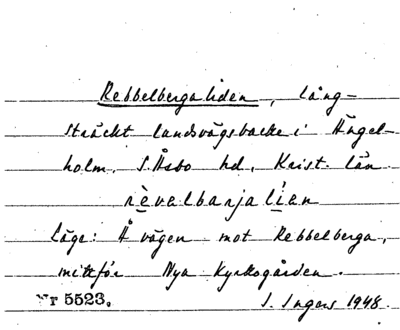 Rebbelbergaliden, lång-
sträckt landsvägsbacke i Ängel-
holm, S. Åsbo hd, Krist. län.
rèvalbarjalían
Läge: Å vägen mot Rebbelberga,
mittför Nya Kyrkogården.
Nr 5523. I. Ingers 1948.